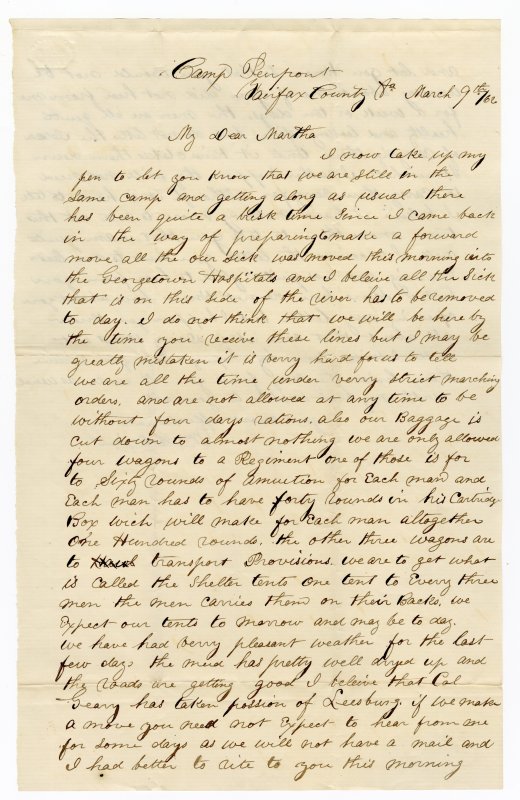 Camp Peirpont
Fairfax County Va March 9th/62
My Dear Martha
I now take up my
pen to let you know that we are still in the
same camp and getting along as usual there
has been quite a bisk time since I came back
in the way of prepairing to make a forward
move all the our sick was moved this morning into
the Georgetown Hospitals and I beleive all the sick
that is on this side of the river has to be removed
to day. I do not think that we will be here by
the time you receive these lines but I may be
greatly mistaken it is verry hard for us to tell
we are all the time under verry strict marching
orders, and are not allowed at any time to be
without four days rations. also our Baggage is
cut down to almost nothing we are only allowed
four wagons to a Regiment one of those is for
to Sixty rounds of amuition for Each man and
Each man has to have forty rounds in his Cartridge
Box wich will make for Each man altogether
One Hundred rounds. the other three wagons are
to transport Provisions. we are to get what
is called the Shelter tents one tent to Every three
men the men carries them on their Backs, we
Expect our tents to marrow and may be to day.
we have had verry pleasant weather for the last
few days the mud has pretty well dryed up and
the roads are getting good I beleive that Col
Geary has taken possion of Leesburg. if we make
a move you need not Expect to hear from me
for some days as we will not have a mail and
I had better to rite to you this morning